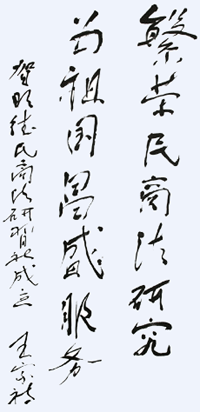 繁荣民商法研究
为祖国昌盛服务
贺明德民商法研习社成立 王家福